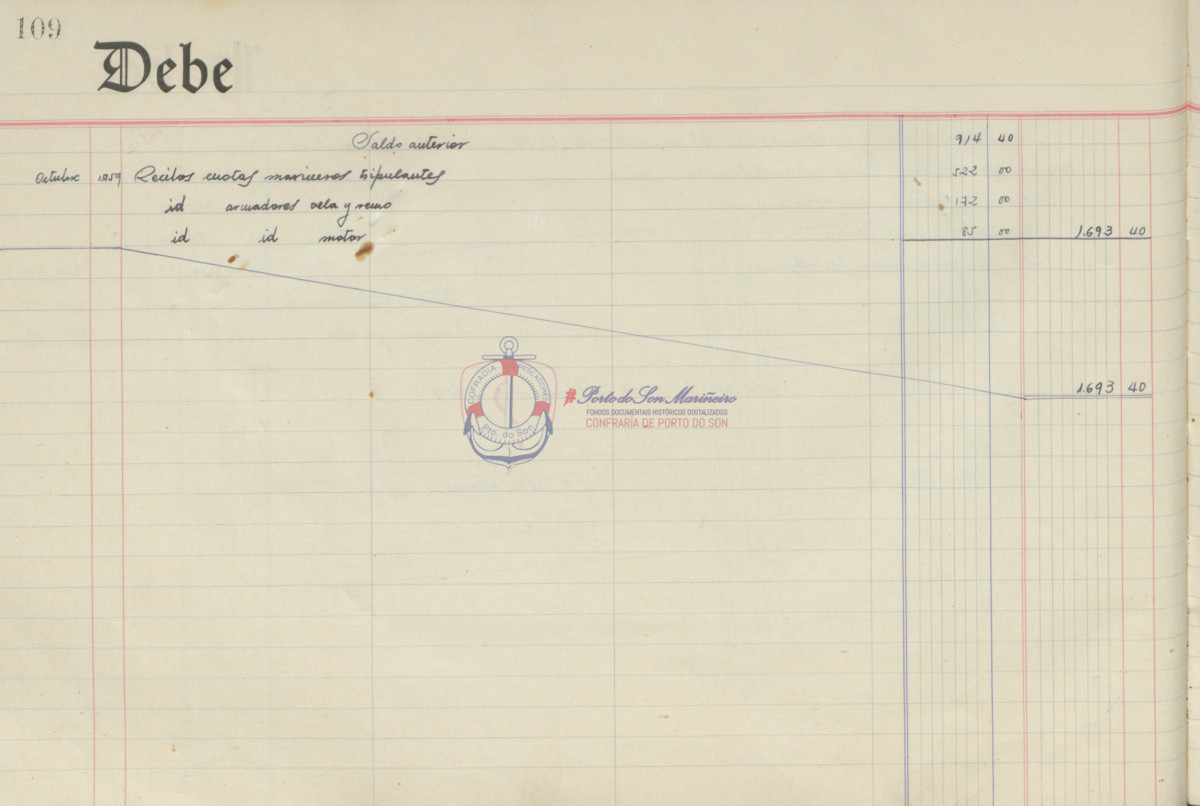 109
Debe
Saldo anterior 914 40
Octubre 1959 Recibos cuotas marineros tripulantes 522 00
id armadores vela y remo 172 00
id id motor 85 00 1.693 40
1.693 40
COFRADIA PESCADORES
Pto. do Son
#Porto do Son Mariñeiro
FONDOS DOCUMENTAIS HISTÓRICOS DIXITALIZADOS
CONFRARÍA DE PORTO DO SON